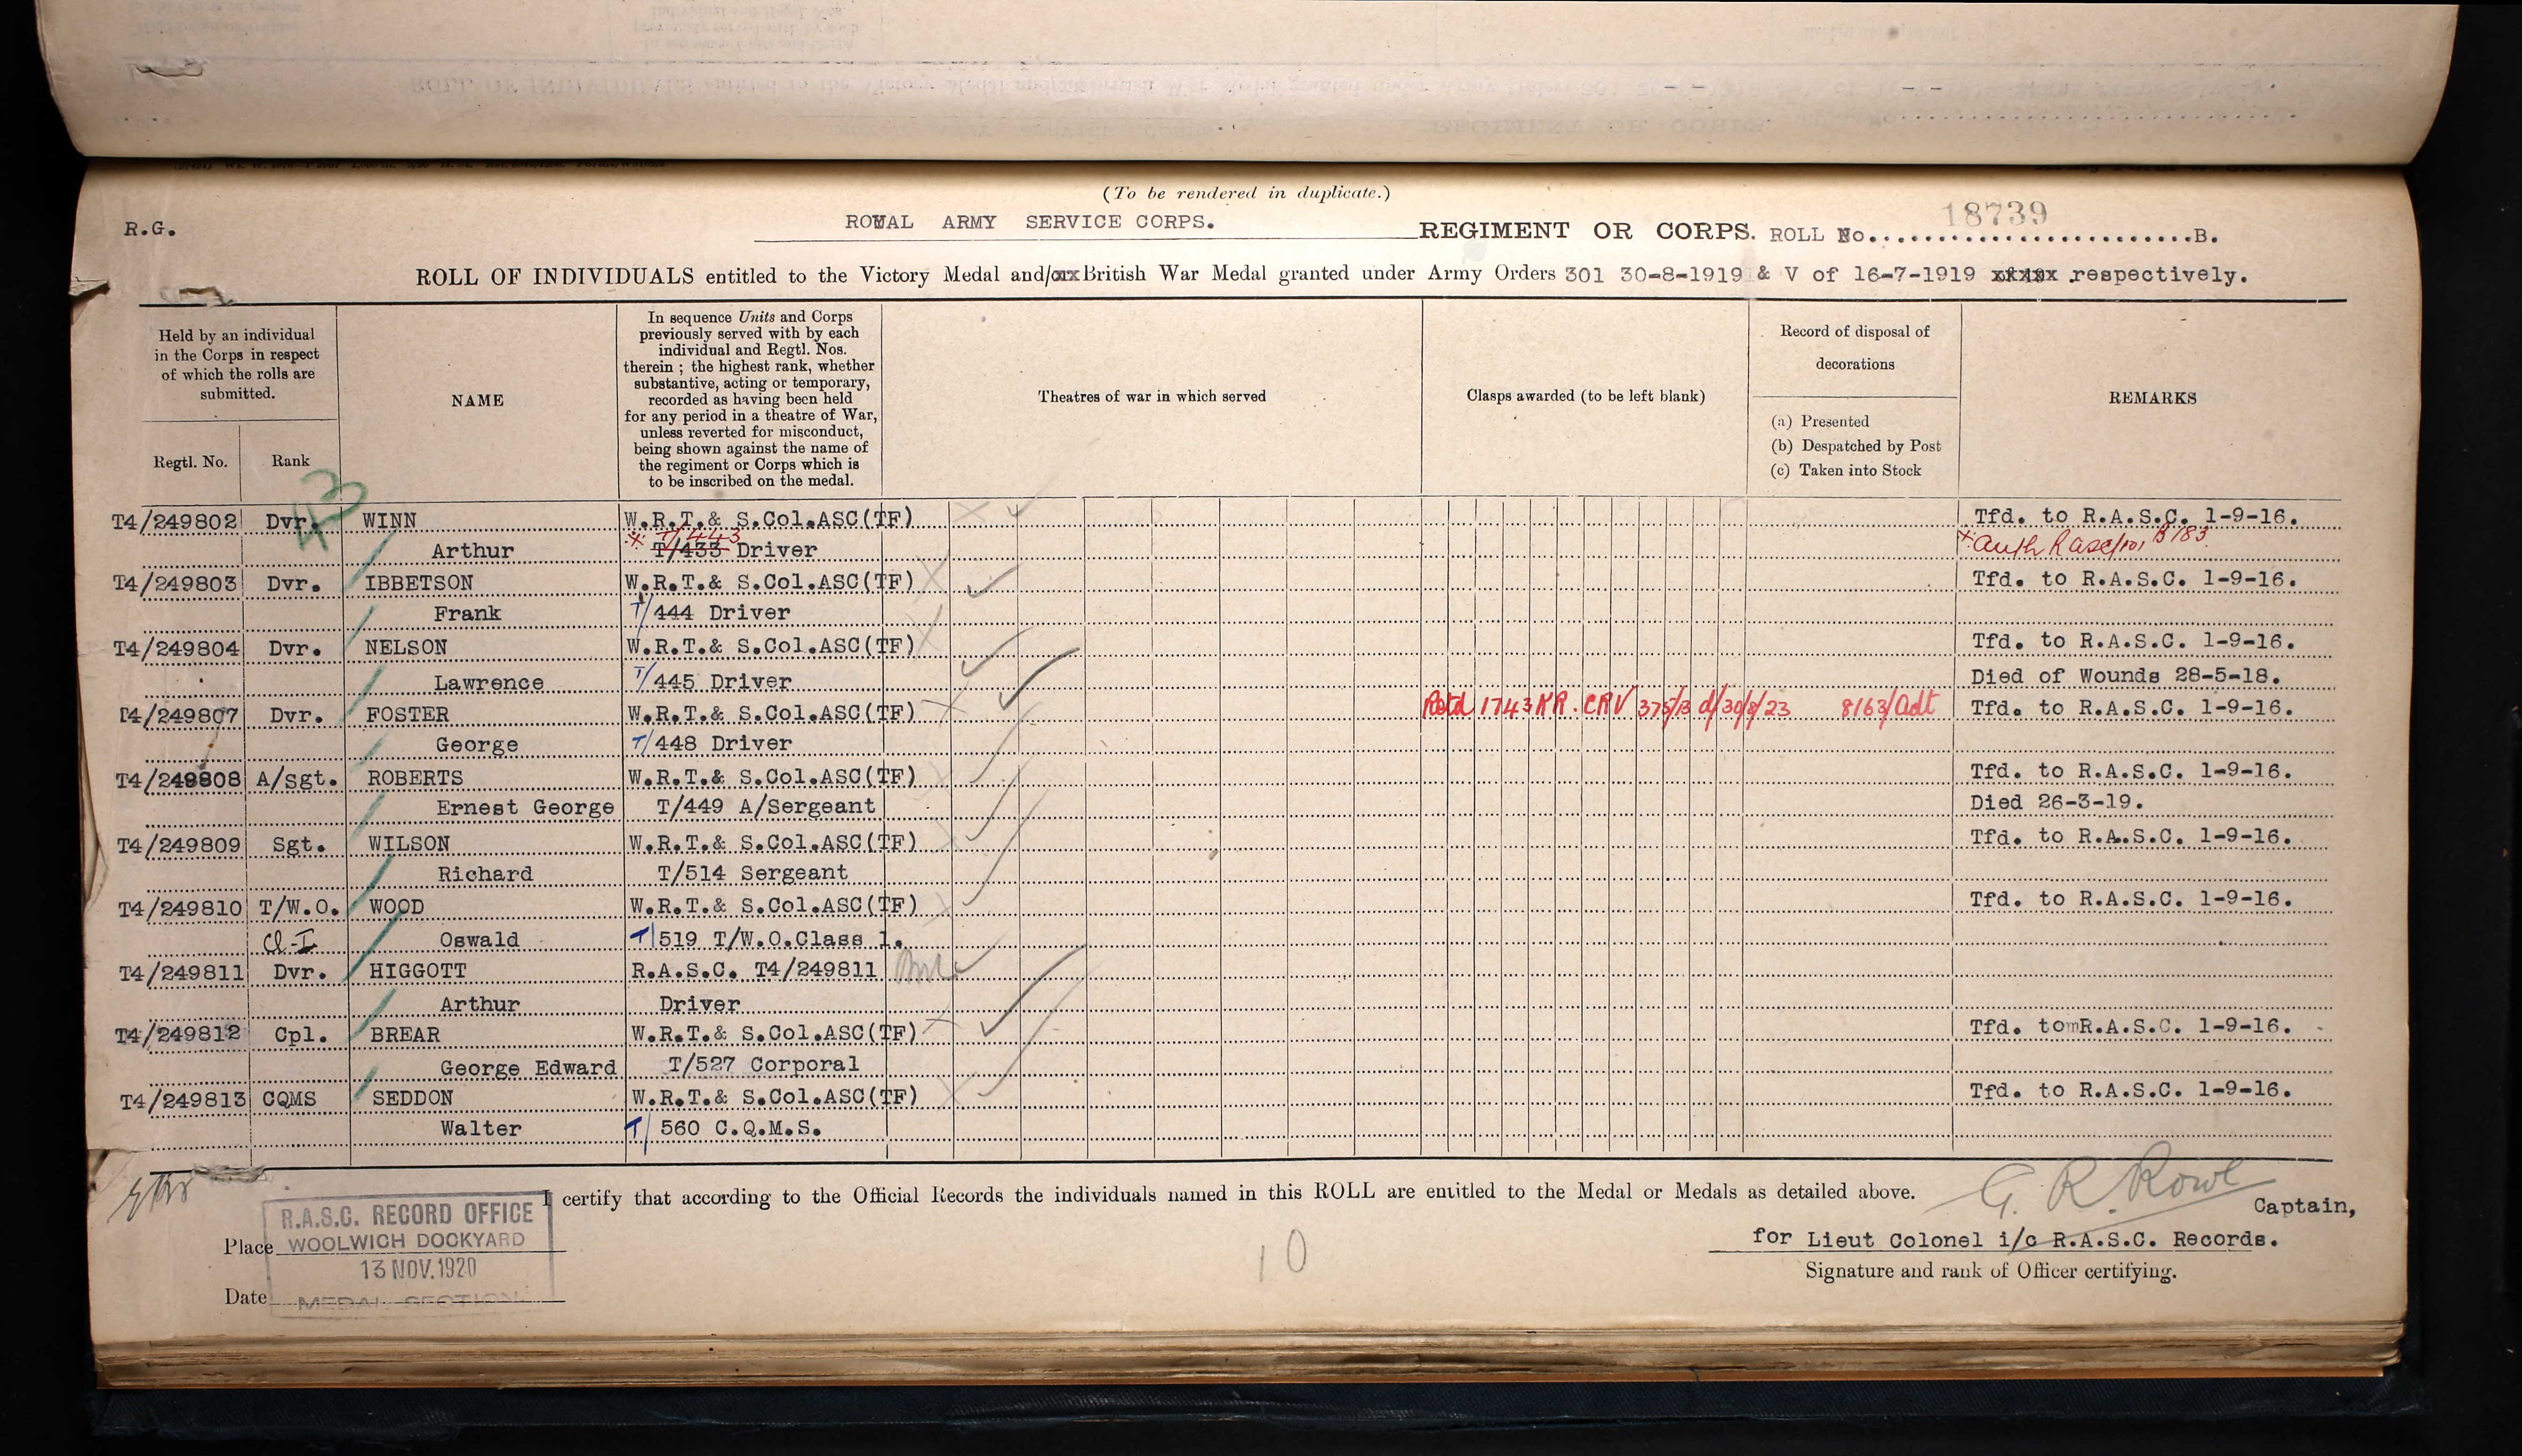 (To be rendered in duplicate.)
R.G. ROYAL ARMY SERVICE CORPS. REGIMENT OR CORPS. ROLL No. 18739 B.
ROLL OF INDIVIDUALS entitled to the Victory Medal and/or British War Medal granted under Army Orders 301 30-8-1919 & V of 16-7-1919 respectively.
Held by an individual in the Corps in respect of which the rolls are submitted.
Regtl. No. Rank
NAME
In sequence Units and Corps previously served with by each individual and Regtl. Nos. therein ; the highest rank, whether substantive, acting or temporary, recorded as having been held for any period in a theatre of War, unless reverted for misconduct, being shown against the name of the regiment or Corps which is to be inscribed on the medal.
Theatres of war in which served
Clasps awarded (to be left blank)
Record of disposal of decorations
(a) Presented
(b) Despatched by Post
(c) Taken into Stock
REMARKS
T4/249802 Dvr. WINN W.R.T.& S.Col.ASC(TF) Tfd. to R.A.S.C. 1-9-16.
Arthur x T/443 T/433 Driver x Auth Rasc/101 B/83
T4/249803 Dvr. IBBETSON W.R.T.& S.Col.ASC(TF) Tfd. to R.A.S.C. 1-9-16.
Frank T/444 Driver
T4/249804 Dvr. NELSON W.R.T.& S.Col.ASC(TF) Tfd. to R.A.S.C. 1-9-16.
Lawrence T/445 Driver Died of Wounds 28-5-18.
T4/249807 Dvr. FOSTER W.R.T.& S.Col.ASC(TF) Retd 1743 KR. CRV 375/B d/30/8/23 8163/Adt Tfd. to R.A.S.C. 1-9-16.
George T/448 Driver
T4/249808 A/Sgt. ROBERTS W.R.T.& S.Col.ASC(TF) Tfd. to R.A.S.C. 1-9-16.
Ernest George T/449 A/Sergeant Died 26-3-19.
T4/249809 Sgt. WILSON W.R.T.& S.Col.ASC(TF) Tfd. to R.A.S.C. 1-9-16.
Richard T/514 Sergeant
T4/249810 T/W.O. WOOD W.R.T.& S.Col.ASC(TF) Tfd. to R.A.S.C. 1-9-16.
Cl-I Oswald T/519 T/W.O.Class 1.
T4/249811 Dvr. HIGGOTT R.A.S.C. T4/249811
Arthur Driver
T4/249812 Cpl. BREAR W.R.T.& S.Col.ASC(TF) Tfd. tomR.A.S.C. 1-9-16.
George Edward T/527 Corporal
T4/249813 CQMS SEDDON W.R.T.& S.Col.ASC(TF) Tfd. to R.A.S.C. 1-9-16.
Walter T/560 C.Q.M.S.
I certify that according to the Official Records the individuals named in this ROLL are entitled to the Medal or Medals as detailed above.
G. R. Rowe Captain,
for Lieut Colonel i/c R.A.S.C. Records.
Signature and rank of Officer certifying.
R.A.S.C. RECORD OFFICE
Place WOOLWICH DOCKYARD
13 NOV.1920
Date MEDAL SECTION
10